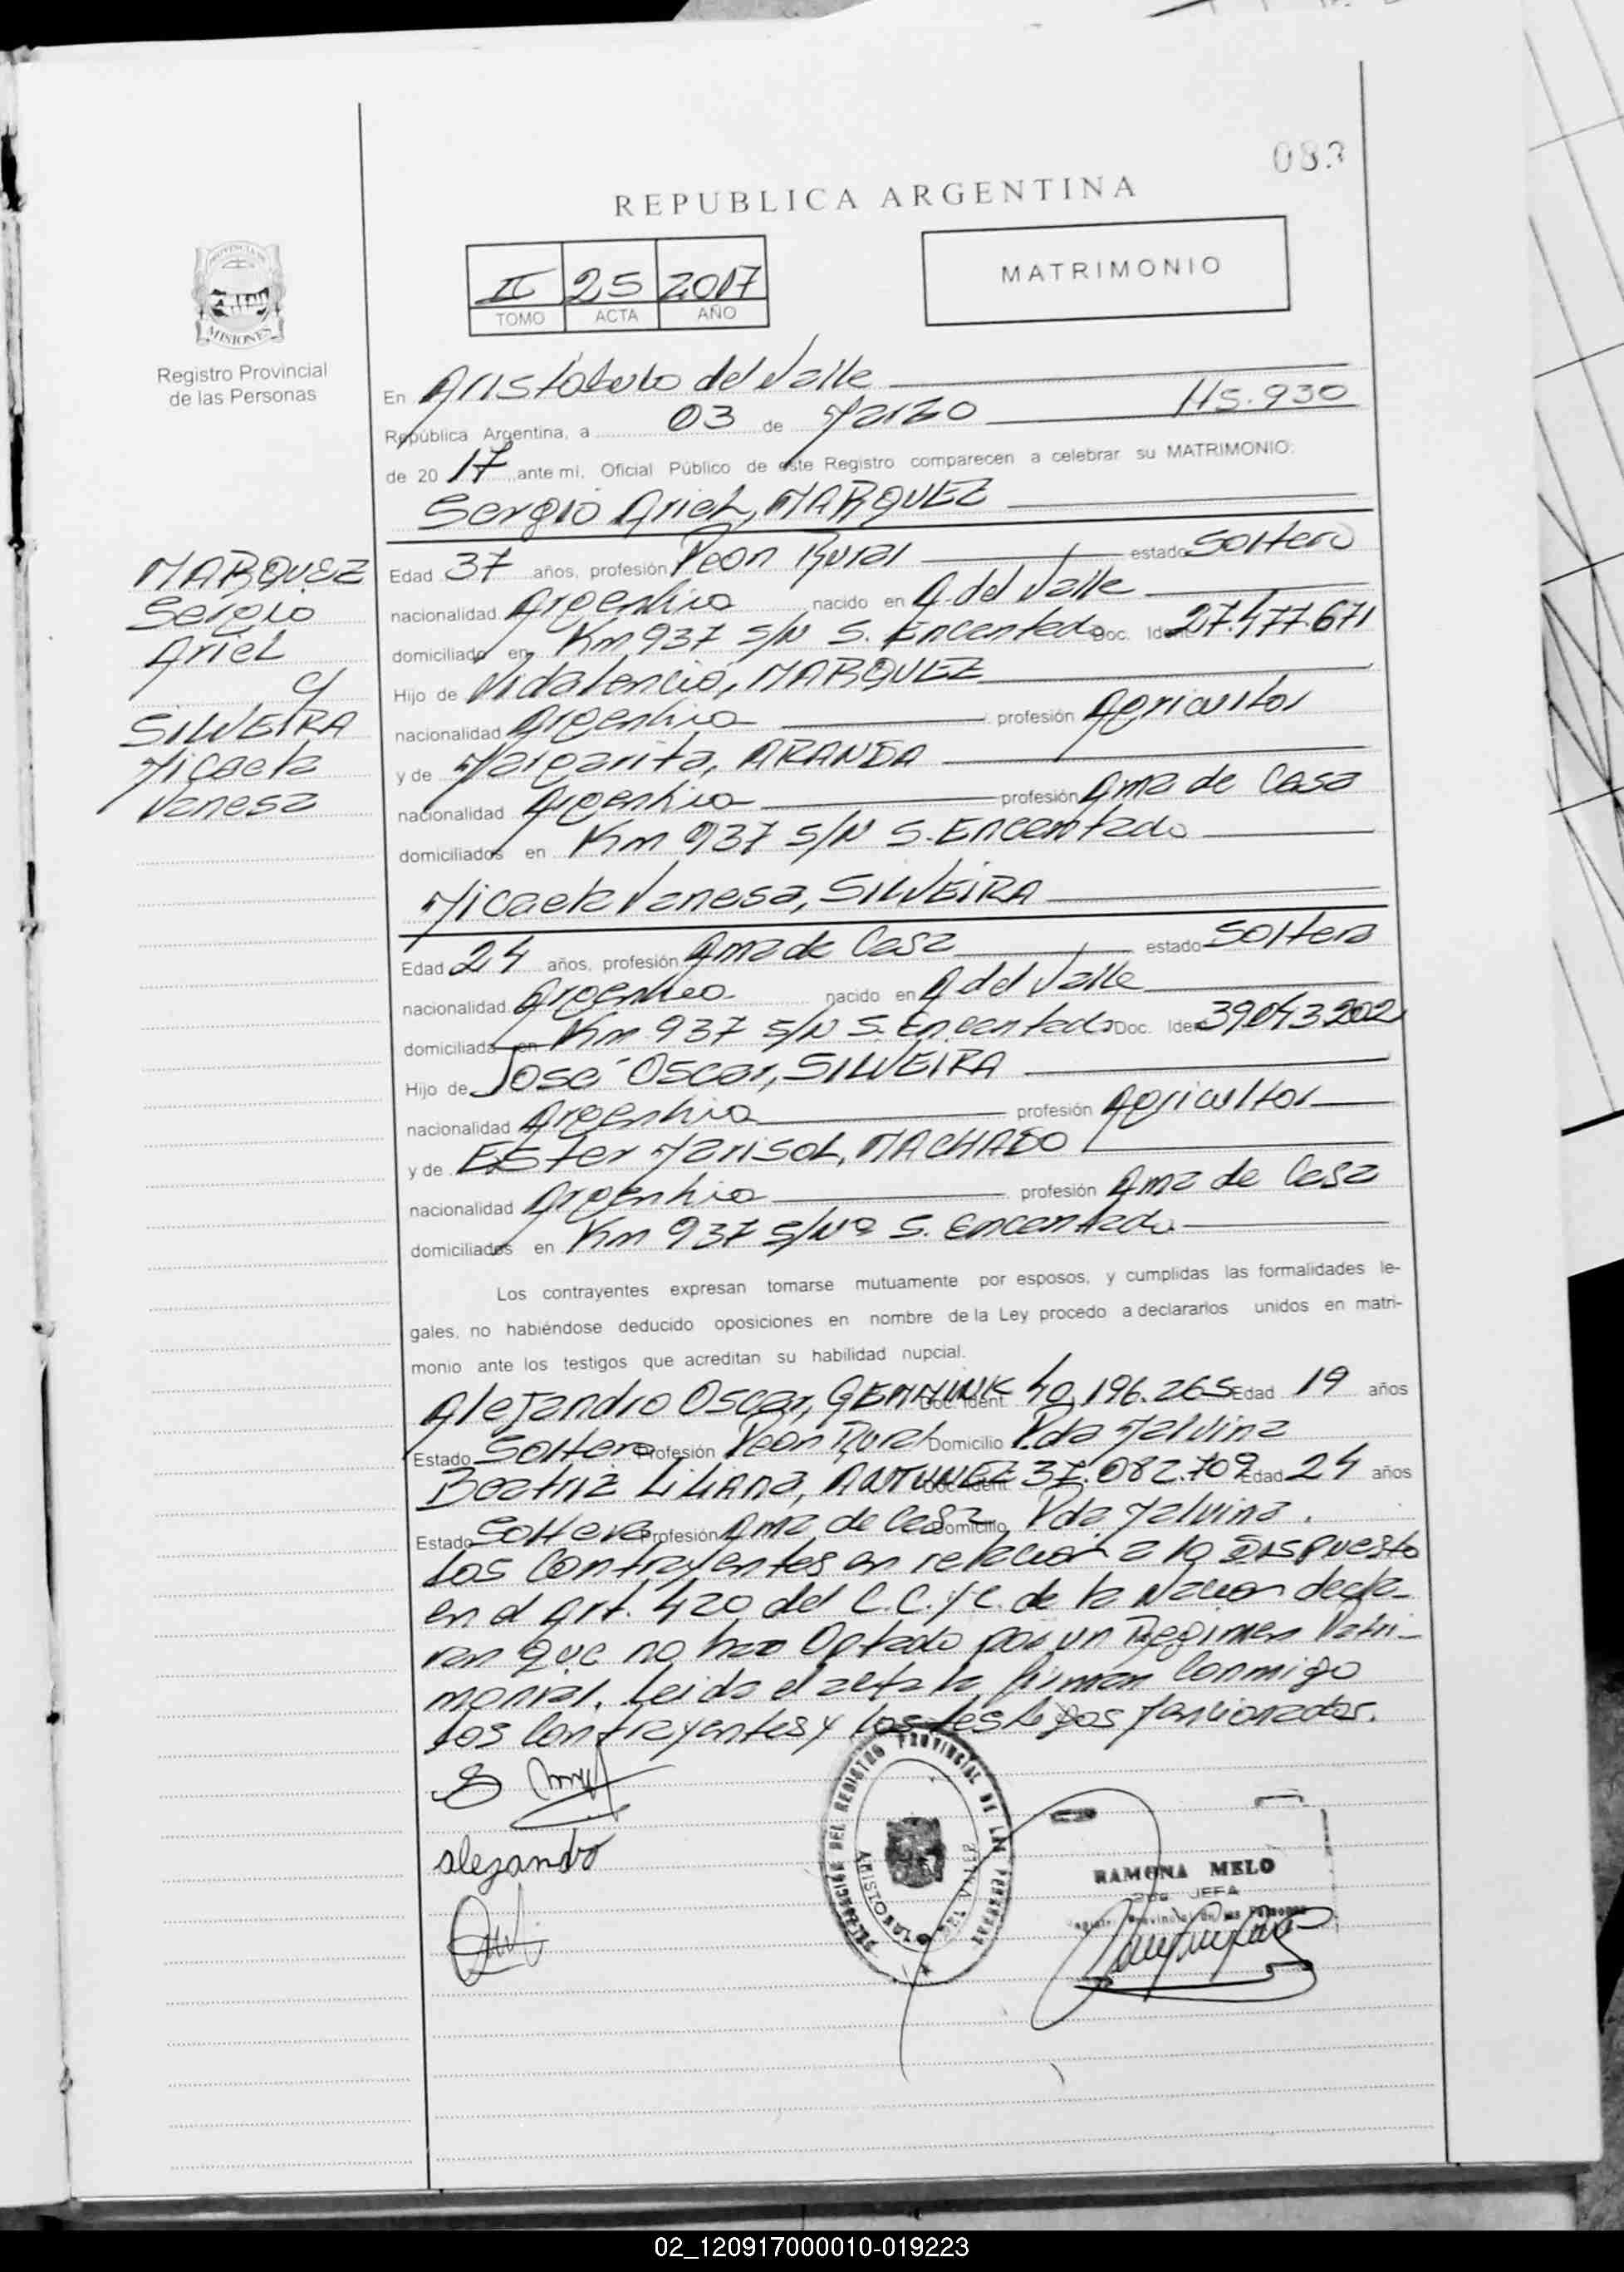 REPUBLICA ARGENTINA
PROVINCIA DE
MISIONES
Registro Provincial
de las Personas
II 25 2017
TOMO ACTA AÑO
MATRIMONIO
En Aristóbulo del Valle
República Argentina, a 03 de Marzo Hs. 930
de 20 17 ante mi, Oficial Público de este Registro comparecen a celebrar su MATRIMONIO:
Sergio Ariel, MARQUEZ
MARQUEZ
Sergio
Ariel
c/
SILVEIRA
Micaela
Vanesa
Edad 37 años, profesión Peon Rural estado Soltero
nacionalidad Argentino nacido en A. del Valle
domiciliado en Km 937 S/N S. Encantado Doc. Ident. 27.477.671
Hijo de MARQUEZ
nacionalidad Argentina profesión Agricultor
y de Margarita, ARANDA
nacionalidad Argentina profesión Ama de Casa
domiciliados en Km 937 S/N S. Encantado
Micaela Vanesa, SILVEIRA
Edad 24 años, profesión Ama de Casa estado Soltera
nacionalidad Argentina nacido en A del Valle
domiciliada en Km 937 S/N S. Encantado Doc. Ident. 39.043.202
Hijo de José Oscar, SILVEIRA
nacionalidad Argentina profesión Agricultor
y de Ester Marisol, MACHADO
nacionalidad Argentina profesión Ama de Casa
domiciliados en Km 937 S/Nº S. Encantado
Los contrayentes expresan tomarse mutuamente por esposos, y cumplidas las formalidades le-
gales, no habiéndose deducido oposiciones en nombre de la Ley procedo a declararlos unidos en matri-
monio ante los testigos que acreditan su habilidad nupcial.
Alejandro Oscar, Doc. Ident. 40.196.265 Edad 19 años
Estado Soltero Profesión Peon Rural Domicilio Pda Malvina
Beatriz Liliana, ANTUNEZ Doc. Ident. 37.082.709 Edad 24 años
Estado Soltera Profesión Ama de Casa Domicilio Pda Malvina.
Los Contrayentes en relacion a lo Dispuesto
en el Art. 420 del C.C. y C. de la Nacion decla-
ran que no han Optado por un Regimen Patri-
monial. Leida el acta la firman Conmigo
los Contrayentes y los testigos mencionados.
alejandro
DEL REGISTRO PROVINCIAL DE LAS PERSONAS
ARISTOBULO DEL VALLE
RAMONA MELO
JEFA
Registro Provincial de las Personas
02_120917000010-019223